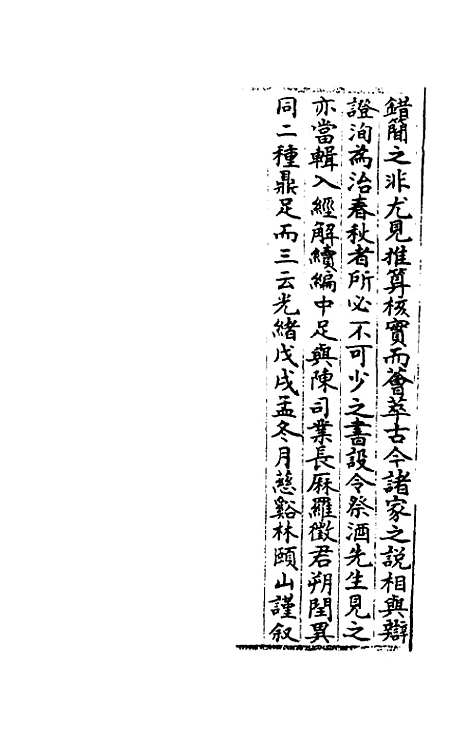 錯簡之非尤見推算核實而薈萃古今諸家之說相與辯
證洵為治春秋者所必不可少之書設令祭酒先生見之
亦當輯入經解續編中足與陳司業長厤羅徵君朔閏異
同二種鼎足而三云光緒戊戌孟冬月慈谿林頤山謹叙